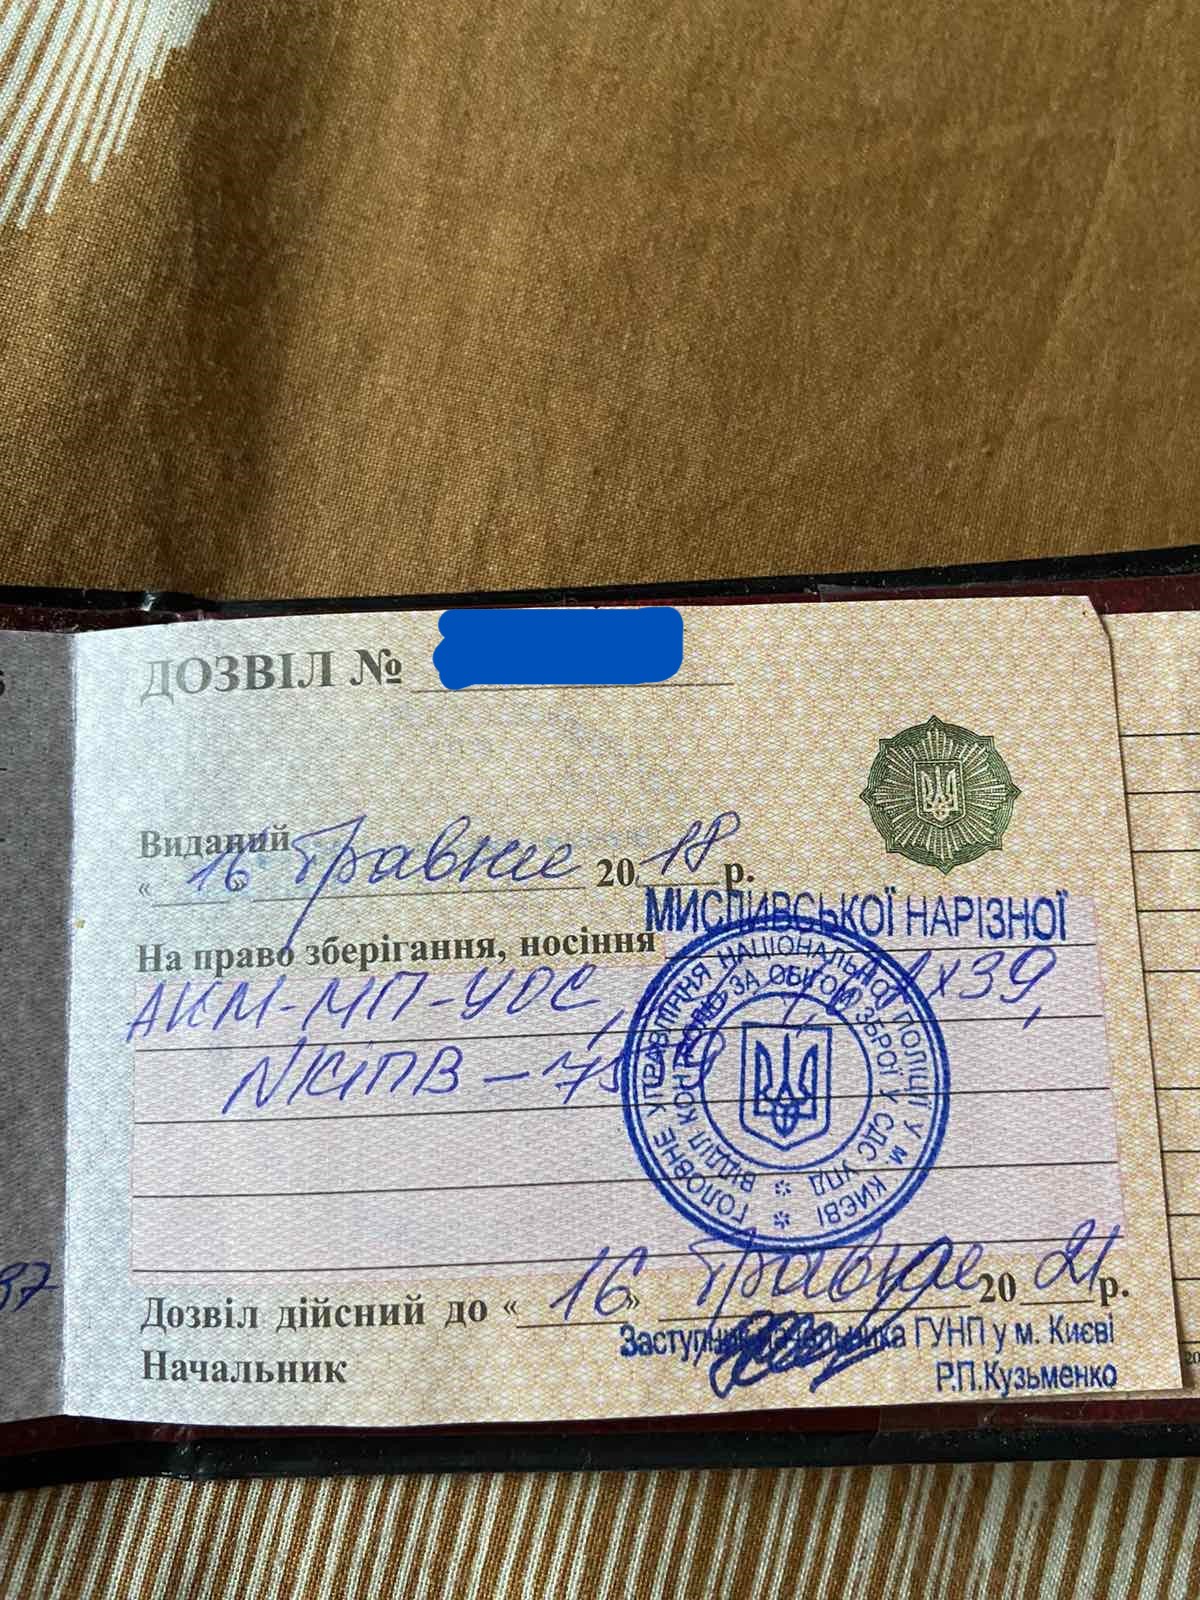 ДОЗВІЛ №
Виданий
« 16 » травне 2018 р.
МИСЛИВСЬКОЇ НАРІЗНОЇ
На право зберігання, носіння
АКМ-МП-УОС, х39,
ГОЛОВНЕ УПРАВЛІННЯ НАЦІОНАЛЬНОЇ ПОЛІЦІЇ У М. КИЄВІ
ВІДДІЛ КОНТРОЛЮ ЗА ОБІГОМ ЗБРОЇ У СДС УПД
Дозвіл дійсний до « 16 » травне 2021 р.
Заступник начальника ГУНП у м. Києві
Начальник
Р.П.Кузьменко
37